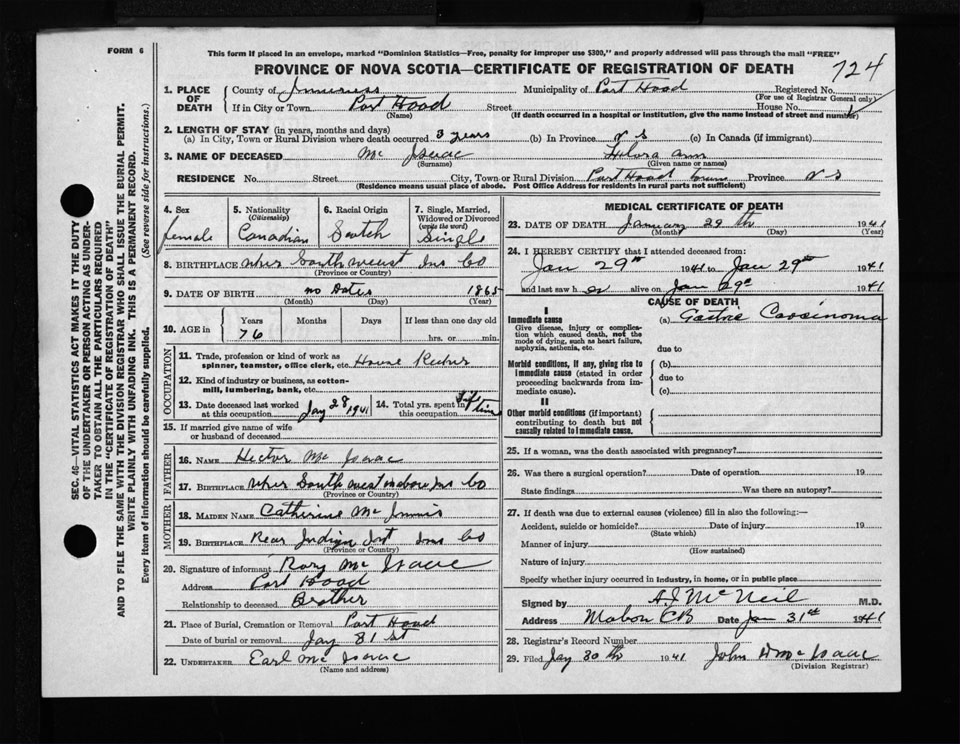 FORM 6
This form if placed in an envelope, marked "Dominion Statistics—Free, penalty for improper use $300," and properly addressed will pass through the mail "FREE"
PROVINCE OF NOVA SCOTIA—CERTIFICATE OF REGISTRATION OF DEATH
724
1. PLACE OF DEATH
County of Inverness Municipality of Port Hood Registered No.
(For use of Registrar General only)
If in City or Town Port Hood Street House No.
(Name) (If death occurred in a hospital or institution, give the name instead of street and number)
2. LENGTH OF STAY (in years, months and days)
(a) In City, Town or Rural Division where death occurred 3 years (b) In Province N S (c) In Canada (if immigrant)
3. NAME OF DECEASED Mc Isaac Ann
(Surname) (Given name or names)
RESIDENCE No. Street City, Town or Rural Division Port Hood town Province N S
(Residence means usual place of abode. Post Office Address for residents in rural parts not sufficient)
4. Sex female
5. Nationality (Citizenship) Canadian
6. Racial Origin Scotch
7. Single, Married, Widowed or Divorced (write the word) Single
8. BIRTHPLACE Upper South west Inv Co
(Province or Country)
9. DATE OF BIRTH no Dates 1865
(Month) (Day) (Year)
10. AGE in Years Months Days If less than one day old
76 hrs. or min.
OCCUPATION
11. Trade, profession or kind of work as spinner, teamster, office clerk, etc. House Keeper
12. Kind of industry or business, as cotton-mill, lumbering, bank, etc.
13. Date deceased last worked at this occupation Jay 28 1941
14. Total yrs. spent in this occupation life time
15. If married give name of wife or husband of deceased
FATHER
16. NAME Hector Mc Isaac
17. BIRTHPLACE Upper South west Mabou Inv Co
(Province or Country)
MOTHER
18. MAIDEN NAME Catherine Mc Innis
19. BIRTHPLACE Rear Indian Inv Co
(Province or Country)
20. Signature of informant Rory Mc Isaac
Address Port Hood
Relationship to deceased Brother
21. Place of Burial, Cremation or Removal Port Hood
Date of burial or removal Jay 31 st
22. UNDERTAKER Earl Mc Isaac
(Name and address)
MEDICAL CERTIFICATE OF DEATH
23. DATE OF DEATH January 29 th 1941
(Month) (Day) (Year)
24. I HEREBY CERTIFY that I attended deceased from:
Jan 29th 1941 to Jan 29th 1941
and last saw h er alive on Jan 29th 1941
CAUSE OF DEATH
I
Immediate cause (a) Gastric Carcinoma
Give disease, injury or complication which caused death, not the mode of dying, such as heart failure, asphyxia, asthenia, etc.
due to
Morbid conditions, if any, giving rise to immediate cause (stated in order proceeding backwards from immediate cause).
(b)
due to
(c)
II
Other morbid conditions (if important) contributing to death but not causally related to immediate cause.
25. If a woman, was the death associated with pregnancy?
26. Was there a surgical operation? Date of operation 19
State findings Was there an autopsy?
27. If death was due to external causes (violence) fill in also the following:—
Accident, suicide or homicide? Date of injury 19
(State which)
Manner of injury
(How sustained)
Nature of injury
Specify whether injury occurred in industry, in home, or in public place
Signed by A J McNeil M.D.
Address Mabou CB Date Jan 31st 1941
28. Registrar's Record Number
29. Filed Jay 30 th 1941 John Mc Isaac
(Division Registrar)
SEC. 46—VITAL STATISTICS ACT MAKES IT THE DUTY
OF THE UNDERTAKER OR PERSON ACTING AS UNDER-
TAKER TO OBTAIN ALL THE PARTICULARS REQUIRED
IN THE "CERTIFICATE OF REGISTRATION OF DEATH"
AND TO FILE THE SAME WITH THE DIVISION REGISTRAR WHO SHALL ISSUE THE BURIAL PERMIT.
WRITE PLAINLY WITH UNFADING INK. THIS IS A PERMANENT RECORD.
Every item of information should be carefully supplied. (See reverse side for instructions.)